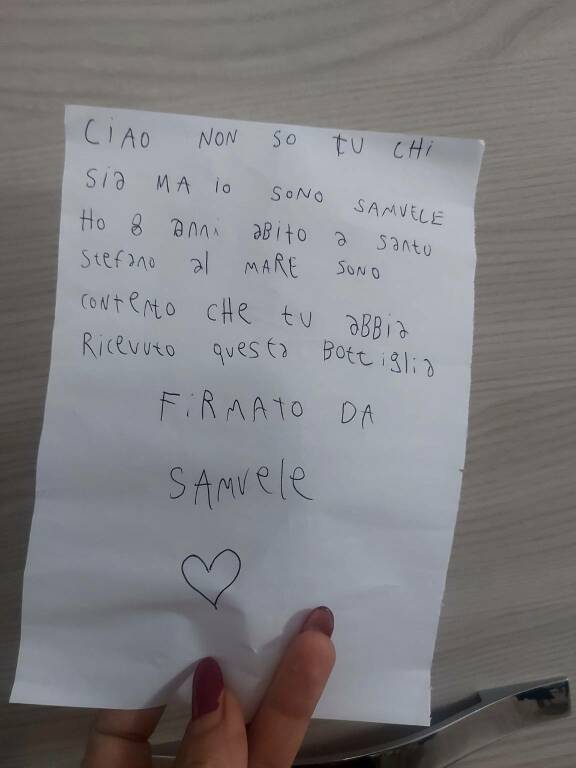 CIAO NON SO TU CHI
Sia MA iO SONO SAMUELE
Ho 8 anni aBiTO a Santo
Stefano al MARE SONO
CONTENTO CHE TU aBBia
RiCeVUTO questa BOTTiglia
FiRMATO DA
SAMUele